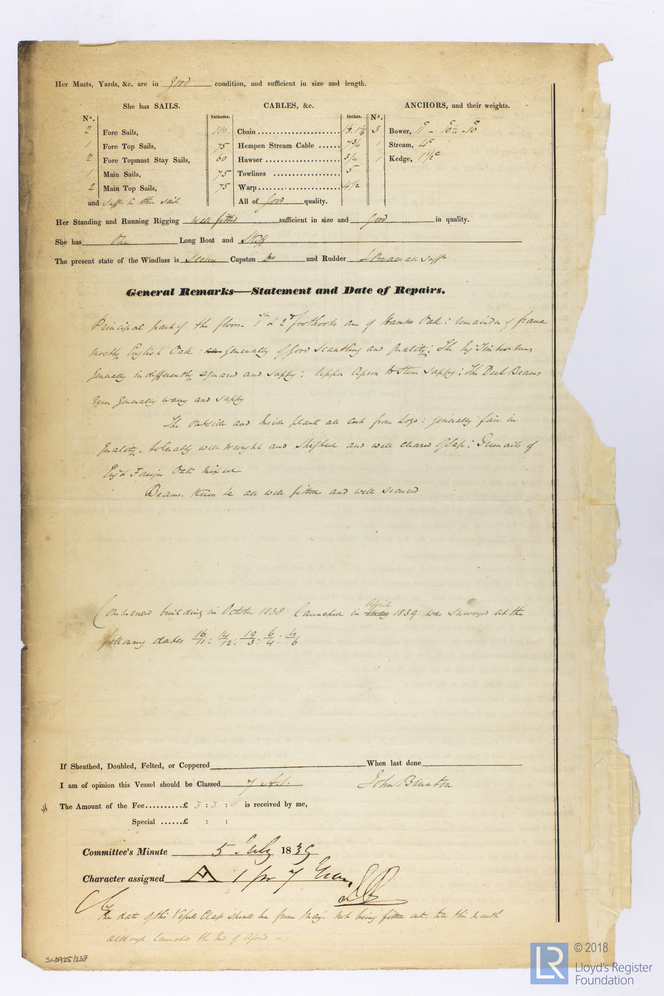 Her Masts, Yards, &c. are in good condition, and sufficient in size and length.
She has SAILS. CABLES, &c. ANCHORS, and their weights.
Nº. Fathoms. Inches. Nº.
2 Fore Sails, 110 Chain 3 Bower,
1 Fore Top Sails, 75 Hempen Stream Cable 1 Stream,
2 Fore Topmast Stay Sails, 60 Hawser 1 Kedge,
1 Main Sails, 75 Towlines 5
2 Main Top Sails, 75 Warp
and All of good quality.
Her Standing and Running Rigging well fitted sufficient in size and good in quality.
She has One Long Boat and Skiff
The present state of the Windlass is Secure Capstan Do and Rudder
General Remarks—Statement and Date of Repairs.
Principal part of the floors 1st & 2d foothooks are of Hambro Oak : remainder of frame
mostly English Oak : generally of good scantling and quality ; The
generally indifferently square and sappy ; Upper Apron & Stem sappy ; The Deck Beams
generally waney and sappy
The outside and inside plank all cut from Logs : generally fair in
quality, tolerably well wrought and shifted and well cleared of sap :
Foreign Oak mixed
Beams Knees &c all well fitted and well secured
Commenced building in October 1838 Launched in April 1839 was surveyed at the
following dates 16/11 : 14/12 : 19/3 : 6/4 : 4/6
If Sheathed, Doubled, Felted, or Coppered When last done
I am of opinion this Vessel should be Classed 7 A.1. John Brunton
The Amount of the Fee..........£ 3 : 3 : 0 is received by me,
Special ......£ : :
Committee's Minute 5 July 1839
Character assigned A 1 for 7 Years
The date of this Vessels Class should be from May not being fitted out till this month
although launched the end of April —
© 2018
LR Lloyd's Register
Foundation